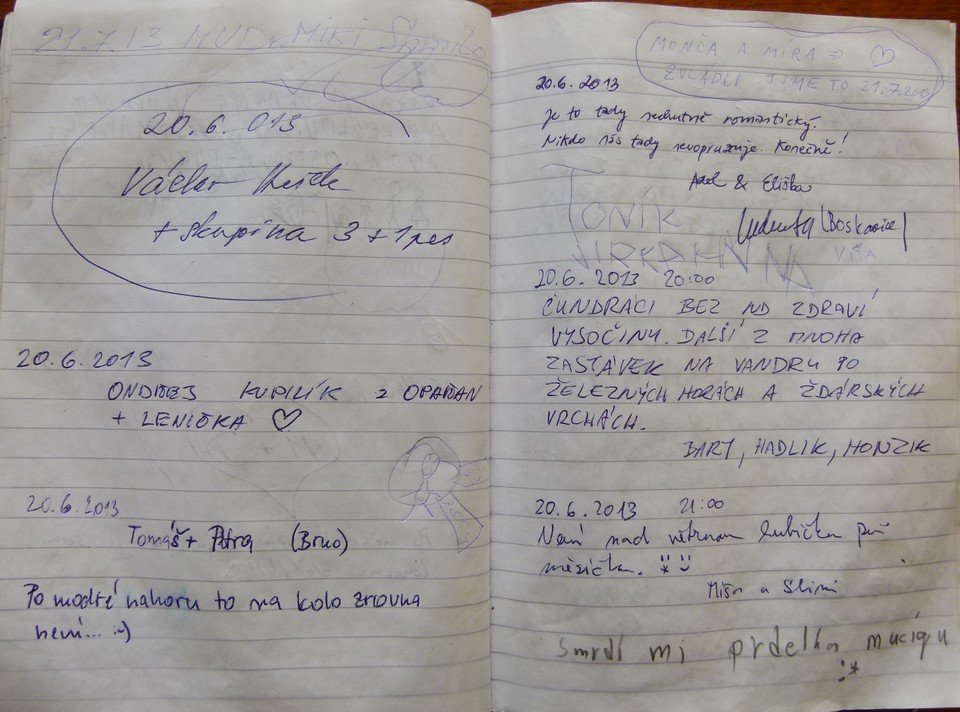 21.7.13 MUDr. MIKI
20.6.013
Václav
+ skupina 3 + 1 pes
20.6.2013
ONDŘEJ KUPILÍK z OPAŘAN
+ LENIČKA ♡
20.6.2013
Tomáš + Petra (Brno)
Po modré nahoru to na kolo zrovna
není... :-)
MONČA A MÍRA => ♡
ZVLÁDLI JSME TO 21.7.2013
20.6.2013
Je to tady romantický.
Nikdo nás tady neopruzuje. Konečně!
& Eliška
TONÍK
(Boskovice)
20.6.2013 20:00
ČUNDRÁCI BEZ ND ZDRAVÍ
VYSOČINU. DALŠÍ Z MNOHA
ZASTÁVEK NA VANDRU PO
ŽELEZNÝCH HORÁCH A ŽĎÁRSKÝCH
VRCHÁCH.
BART, HADLIK, HONZIK
20.6.2013 21:00
Není nad větrnou hubičku při
měsíčku.
Míša a
Smrdí mi prdelka mucíqu